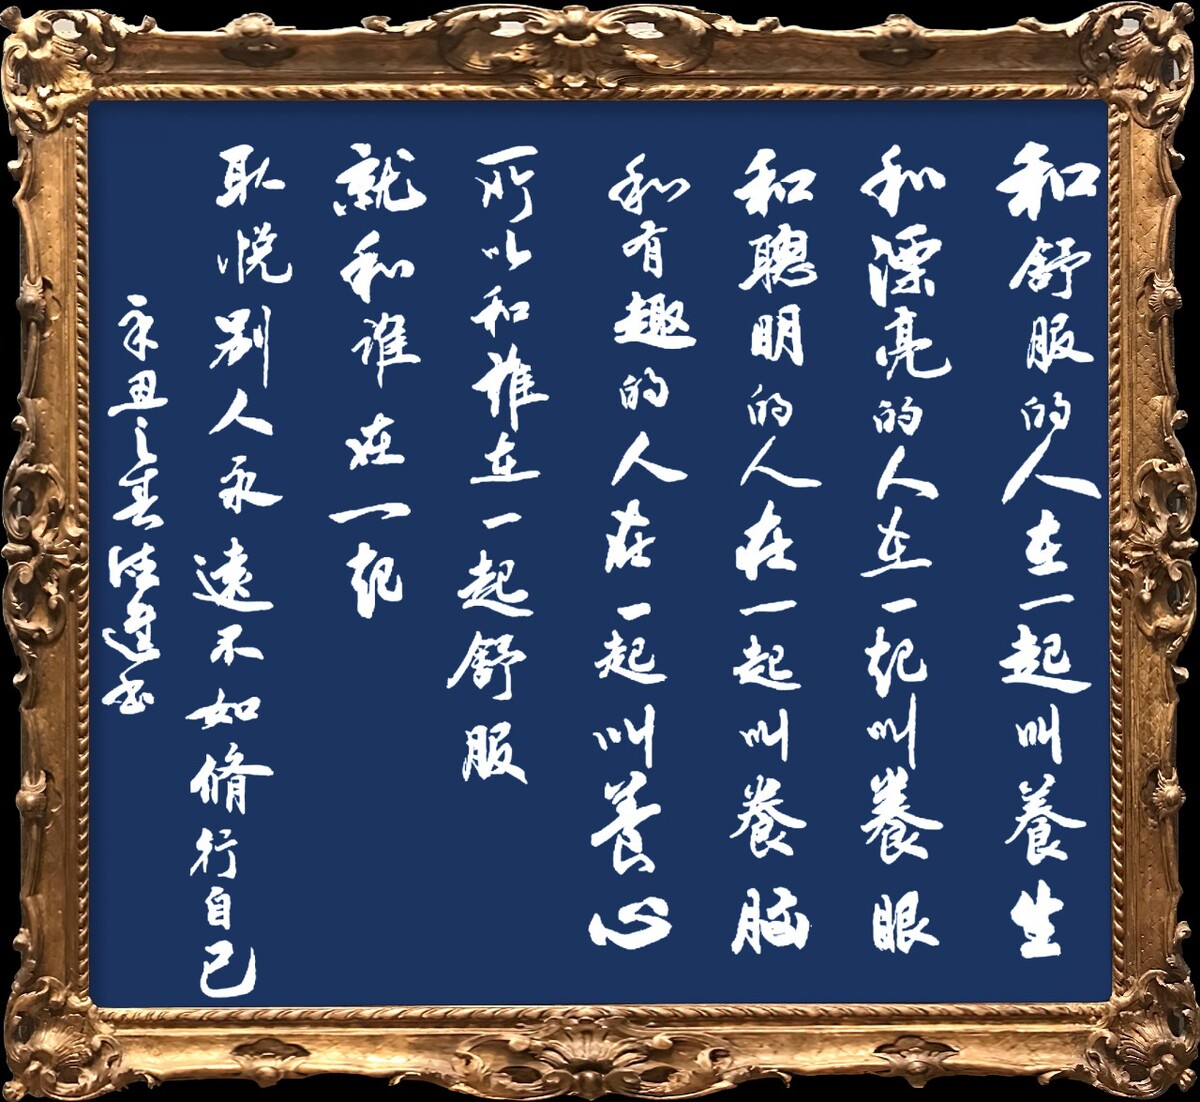 和舒服的人在一起叫養生
和漂亮的人在一起叫養眼
和聰明的人在一起叫養脑
和有趣的人在一起叫養心
所以和誰在一起舒服
就和谁在一起
取悦别人永遠不如脩行自己
辛丑之春 進書